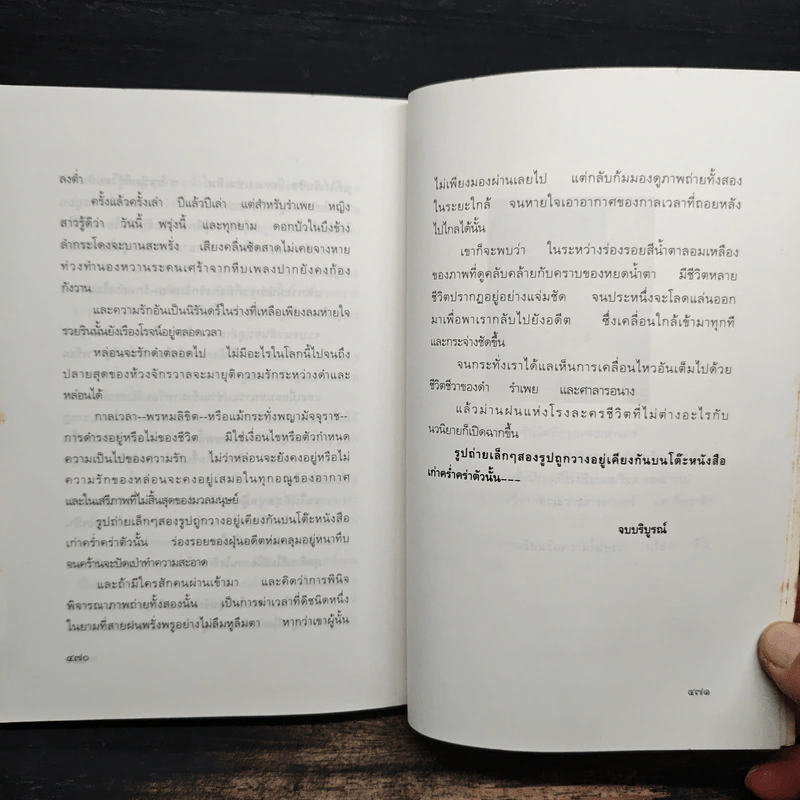 ลงต่ำ
ครั้งแล้วครั้งเล่า ปีแล้วปีเล่า แต่สำหรับรำเพย หญิง
สาวรู้ดีว่า วันนี้ พรุ่งนี้ และทุกยาม ดอกบัวในบึงข้าง
ลำกระโดงจะบานสะพรั่ง เสียงคลื่นซัดสาดไม่เคยจางหาย
ท่วงทำนองหวานระคนเศร้าจากหีบเพลงปากยังคงก้อง
กังวาน
และความรักอันเป็นนิรันดร์ในร่างที่เหลือเพียงลมหายใจ
รวยรินนั้นยังเรืองโรจน์อยู่ตลอดเวลา
หล่อนจะรักดำตลอดไป ไม่มีอะไรในโลกนี้ไปจนถึง
ปลายสุดของห้วงจักรวาลจะมายุติความรักระหว่างดำและ
หล่อนได้
กาลเวลา--พรหมลิขิต--หรือแม้กระทั่งพญามัจจุราช--
การดำรงอยู่หรือไม่ของชีวิต มิใช่เงื่อนไขหรือตัวกำหนด
ความเป็นไปของความรัก ไม่ว่าหล่อนจะยังคงอยู่หรือไม่
ความรักของหล่อนจะคงอยู่เสมอในทุกอณูของอากาศ
และในเสรีภาพที่ไม่สิ้นสุดของมวลมนุษย์
รูปถ่ายเล็กๆสองรูปถูกวางอยู่เคียงกันบนโต๊ะหนังสือ
เก่าคร่ำคร่าตัวนั้น ร่องรอยของฝุ่นอดีตห่มคลุมอยู่หนาทึบ
จนคร้านจะปัดเป่าทำความสะอาด
และถ้ามีใครสักคนผ่านเข้ามา และคิดว่าการพินิจ
พิจารณาภาพถ่ายทั้งสองนั้น เป็นการฆ่าเวลาที่ดีชนิดหนึ่ง
ในยามที่สายฝนพรั่งพรูอย่างไม่ลืมหูลืมตา หากว่าเขาผู้นั้น
๔๗๐
ไม่เพียงมองผ่านเลยไป แต่กลับก้มมองดูภาพถ่ายทั้งสอง
ในระยะใกล้ จนหายใจเอาอากาศของกาลเวลาที่ถอยหลัง
ไปไกลได้นั้น
เขาก็จะพบว่า ในระหว่างร่องรอยสีน้ำตาลอมเหลือง
ของภาพที่ดูคลับคล้ายกับคราบของหยดน้ำตา มีชีวิตหลาย
ชีวิตปรากฏอยู่อย่างแจ่มชัด จนประหนึ่งจะโลดแล่นออก
มาเพื่อพาเรากลับไปยังอดีต ซึ่งเคลื่อนใกล้เข้ามาทุกที
และกระจ่างชัดขึ้น
จนกระทั่งเราได้แลเห็นการเคลื่อนไหวอันเต็มไปด้วย
ชีวิตชีวาของดำ รำเพย และศาลารอนาง
แล้วม่านฝนแห่งโรงละครชีวิตที่ไม่ต่างอะไรกับ
นวนิยายก็เปิดฉากขึ้น
รูปถ่ายเล็กๆสองรูปถูกวางอยู่เคียงกันบนโต๊ะหนังสือ
เก่าคร่ำคร่าตัวนั้น---
จบบริบูรณ์
๔๗๑